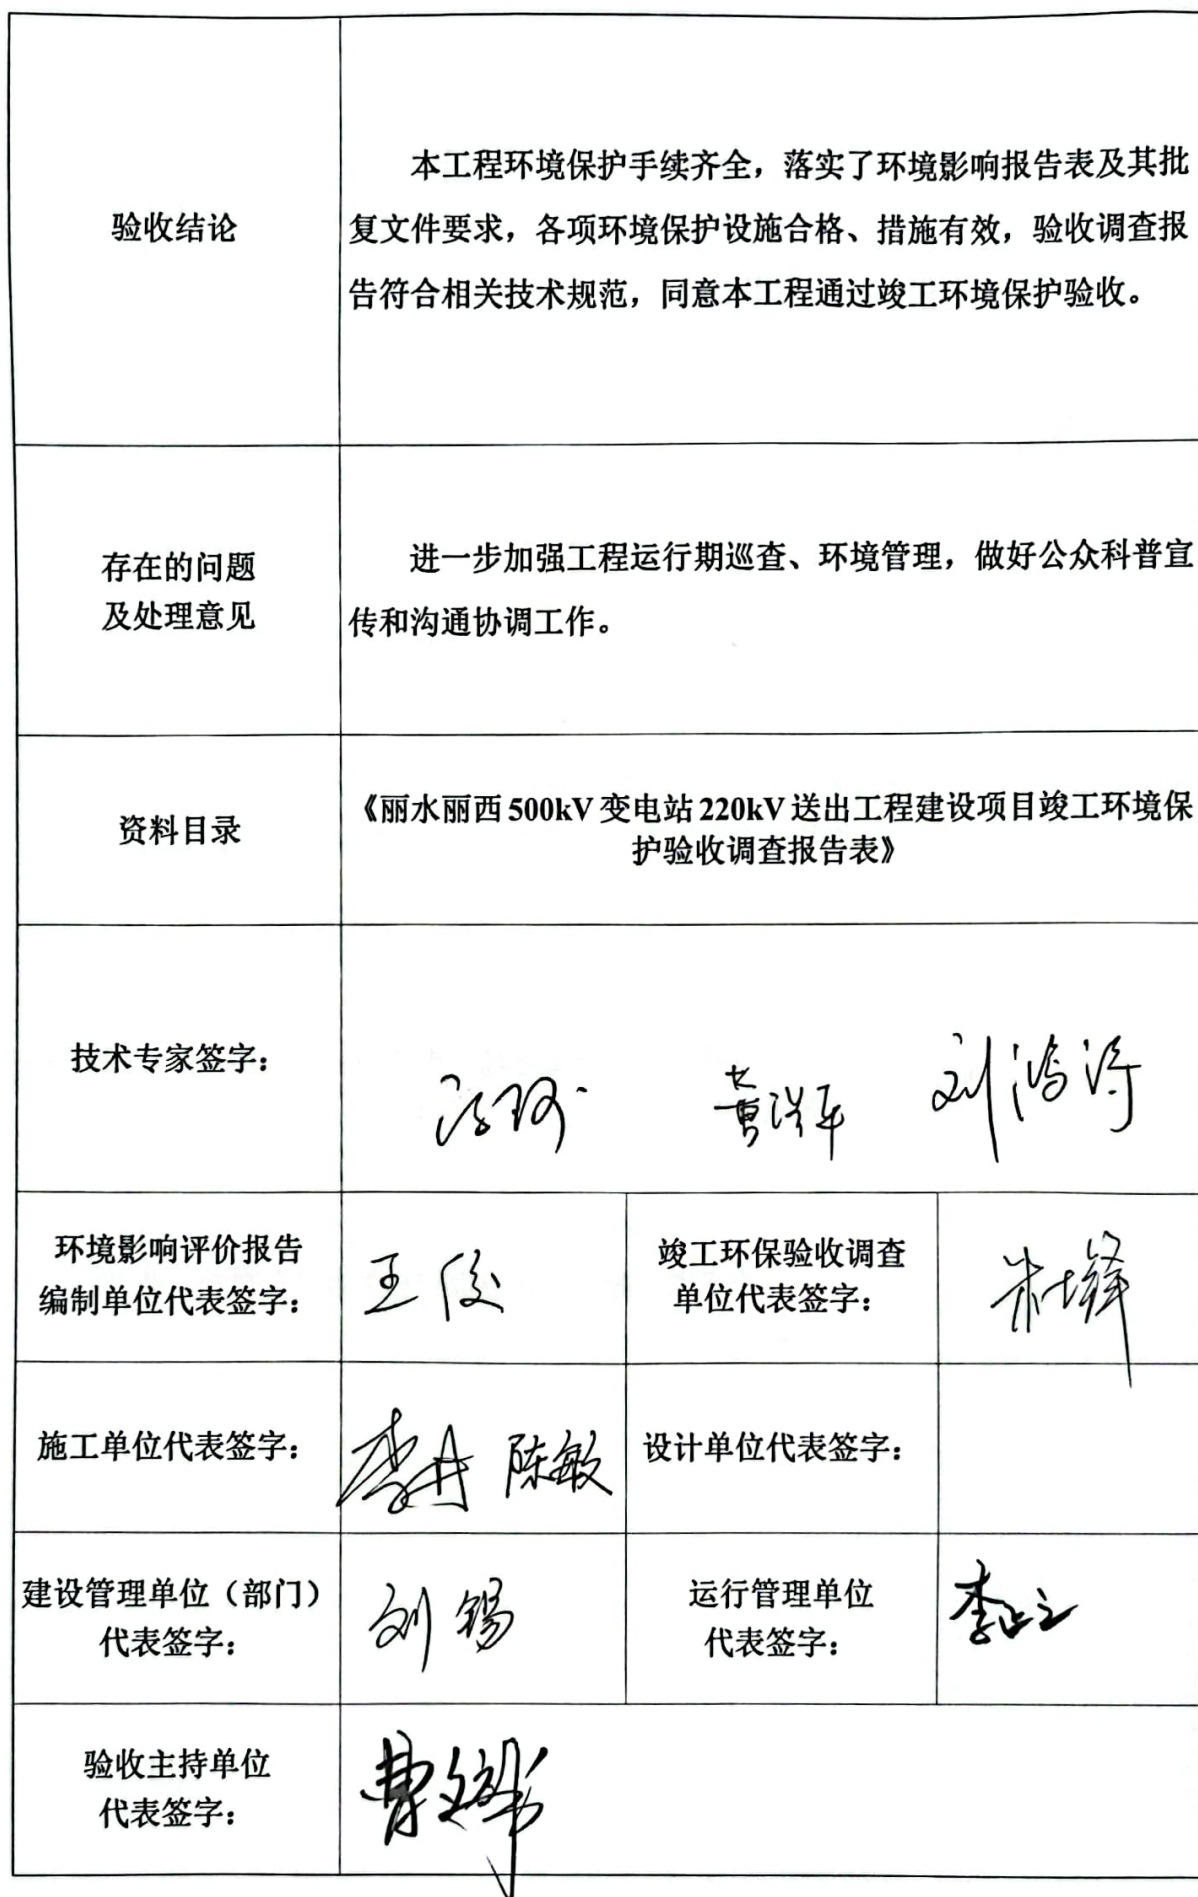 本工程环境保护手续齐全，落实了环境影响报告表及其批
验收结论
复文件要求，各项环境保护设施合格、措施有效，验收调查报
告符合相关技术规范，同意本工程通过竣工环境保护验收。
存在的问题
及处理意见
进一步加强工程运行期巡查、环境管理，做好公众科普宣
传和沟通协调工作。
资料目录
《丽水丽西500kV变电站220kV送出工程建设项目竣工环境保
护验收调查报告表》
技术专家签字：
刘鸿涛
环境影响评价报告
编制单位代表签字：
王俊
竣工环保验收调查
单位代表签字：
施工单位代表签字：
李丹 陈敏
设计单位代表签字：
建设管理单位（部门）
代表签字：
刘锡
运行管理单位
代表签字：
验收主持单位
代表签字：